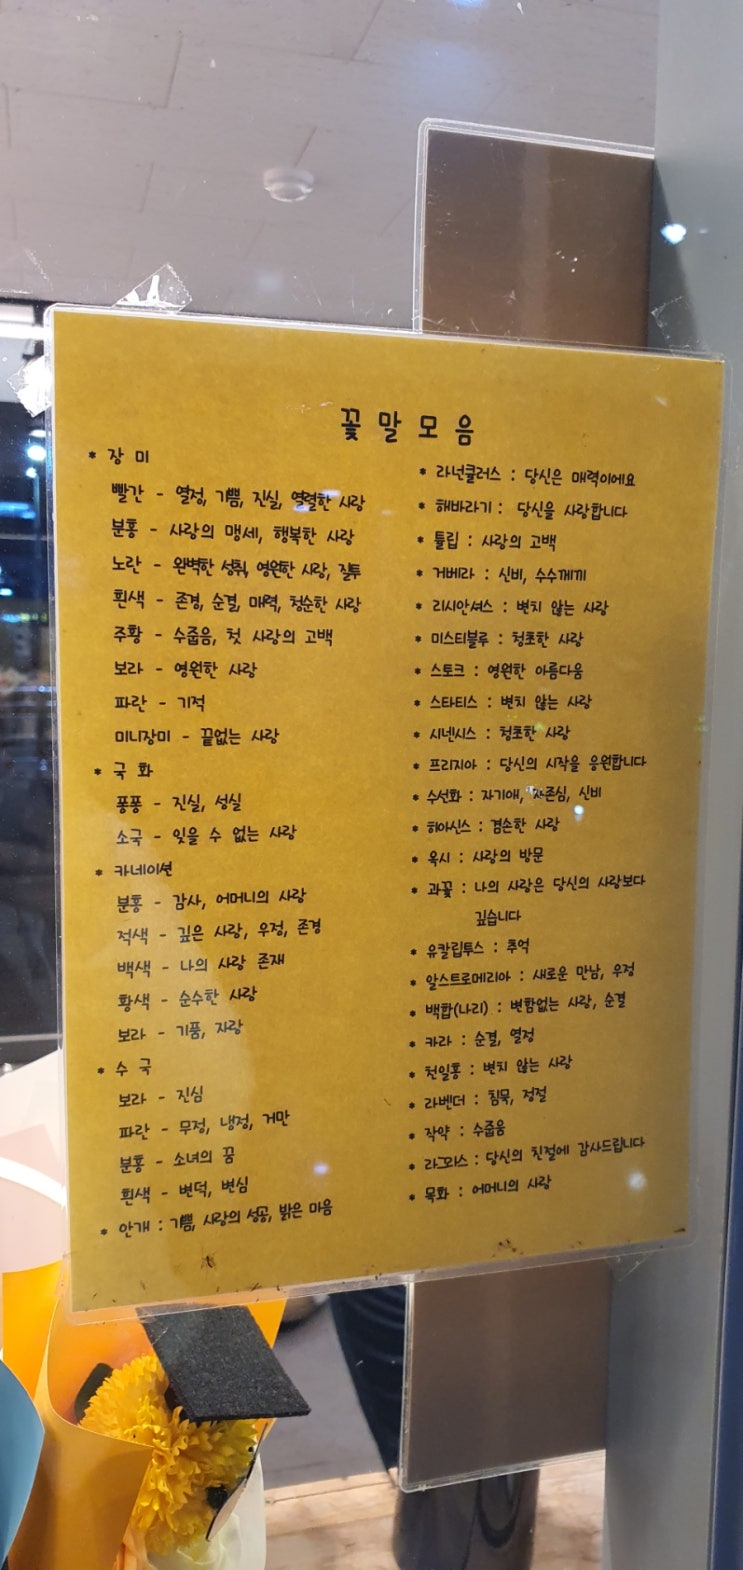 꽃 말 모 음
* 장 미
빨간 - 열정, 기쁨, 진실, 열렬한 사랑
분홍 - 사랑의 맹세, 행복한 사랑
노란 - 완벽한 성취, 영원한 사랑, 질투
흰색 - 존경, 순결, 매력, 청순한 사랑
주황 - 수줍음, 첫 사랑의 고백
보라 - 영원한 사랑
파란 - 기적
미니장미 - 끝없는 사랑
* 국 화
퐁퐁 - 진실, 성실
소국 - 잊을 수 없는 사랑
* 카네이션
분홍 - 감사, 어머니의 사랑
적색 - 깊은 사랑, 우정, 존경
백색 - 나의 사랑 존재
황색 - 순수한 사랑
보라 - 기품, 자랑
* 수 국
보라 - 진심
파란 - 무정, 냉정, 거만
분홍 - 소녀의 꿈
흰색 - 변덕, 변심
* 안개 : 기쁨, 사랑의 성공, 밝은 마음
* 라넌큘러스 : 당신은 매력이에요
* 해바라기 : 당신을 사랑합니다
* 튤립 : 사랑의 고백
* 거베라 : 신비, 수수께끼
* 리시안셔스 : 변치 않는 사랑
* 미스티블루 : 청초한 사랑
* 스토크 : 영원한 아름다움
* 스타티스 : 변치 않는 사랑
* 시넨시스 : 청초한 사랑
* 프리지아 : 당신의 시작을 응원합니다
* 수선화 : 자기애, 자존심, 신비
* 히아신스 : 겸손한 사랑
* 옥시 : 사랑의 방문
* 과꽃 : 나의 사랑은 당신의 사랑보다
깊습니다
* 유칼립투스 : 추억
* 알스트로메리아 : 새로운 만남, 우정
* 백합(나리) : 변함없는 사랑, 순결
* 카라 : 순결, 열정
* 천일홍 : 변치 않는 사랑
* 라벤더 : 침묵, 정절
* 작약 : 수줍음
* 라그라스 : 당신의 친절에 감사드립니다
* 목화 : 어머니의 사랑